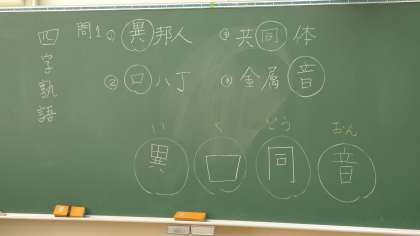 四字熟語
問1 ① 異邦人
② 口八丁
③ 共同体
④ 金属音
い く どう おん
異 口 同 音